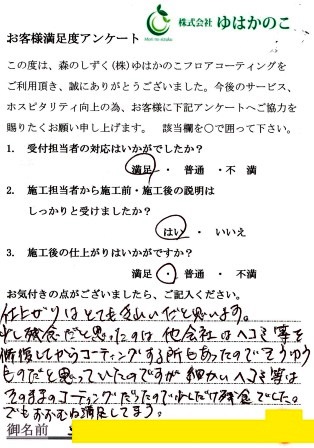 株式会社 ゆはかのこ
Mori no sizuku
お客様満足度アンケート
この度は、森のしずく(株)ゆはかのこフロアコーティングを
ご利用頂き、誠にありがとうございました。今後のサービス、
ホスピタリティ向上の為、お客様に下記アンケートへご協力を
賜りたくお願い申し上げます。 該当欄を○で囲って下さい。
1. 受付担当者の対応はいかがでしたか?
満足 ・ 普通 ・ 不満
2. 施工担当者から施工前・施工後の説明は
しっかりと受けましたか?
はい ・ いいえ
3. 施工後の仕上がりはいかがですか?
満足 ・ 普通 ・ 不満
お気付きの点がございましたら、ご記入ください。
仕上がりはとてもきれいだと思います。
少し残念だと思ったのは他会社はヘコミ等を
修復してからコーティングする所もあったのでそうゆう
ものだと思っていたのですが細かいヘコミ等は
そのままのコーティングだったので少しだけ残念でした。
でもおおむね満足してます。
御名前